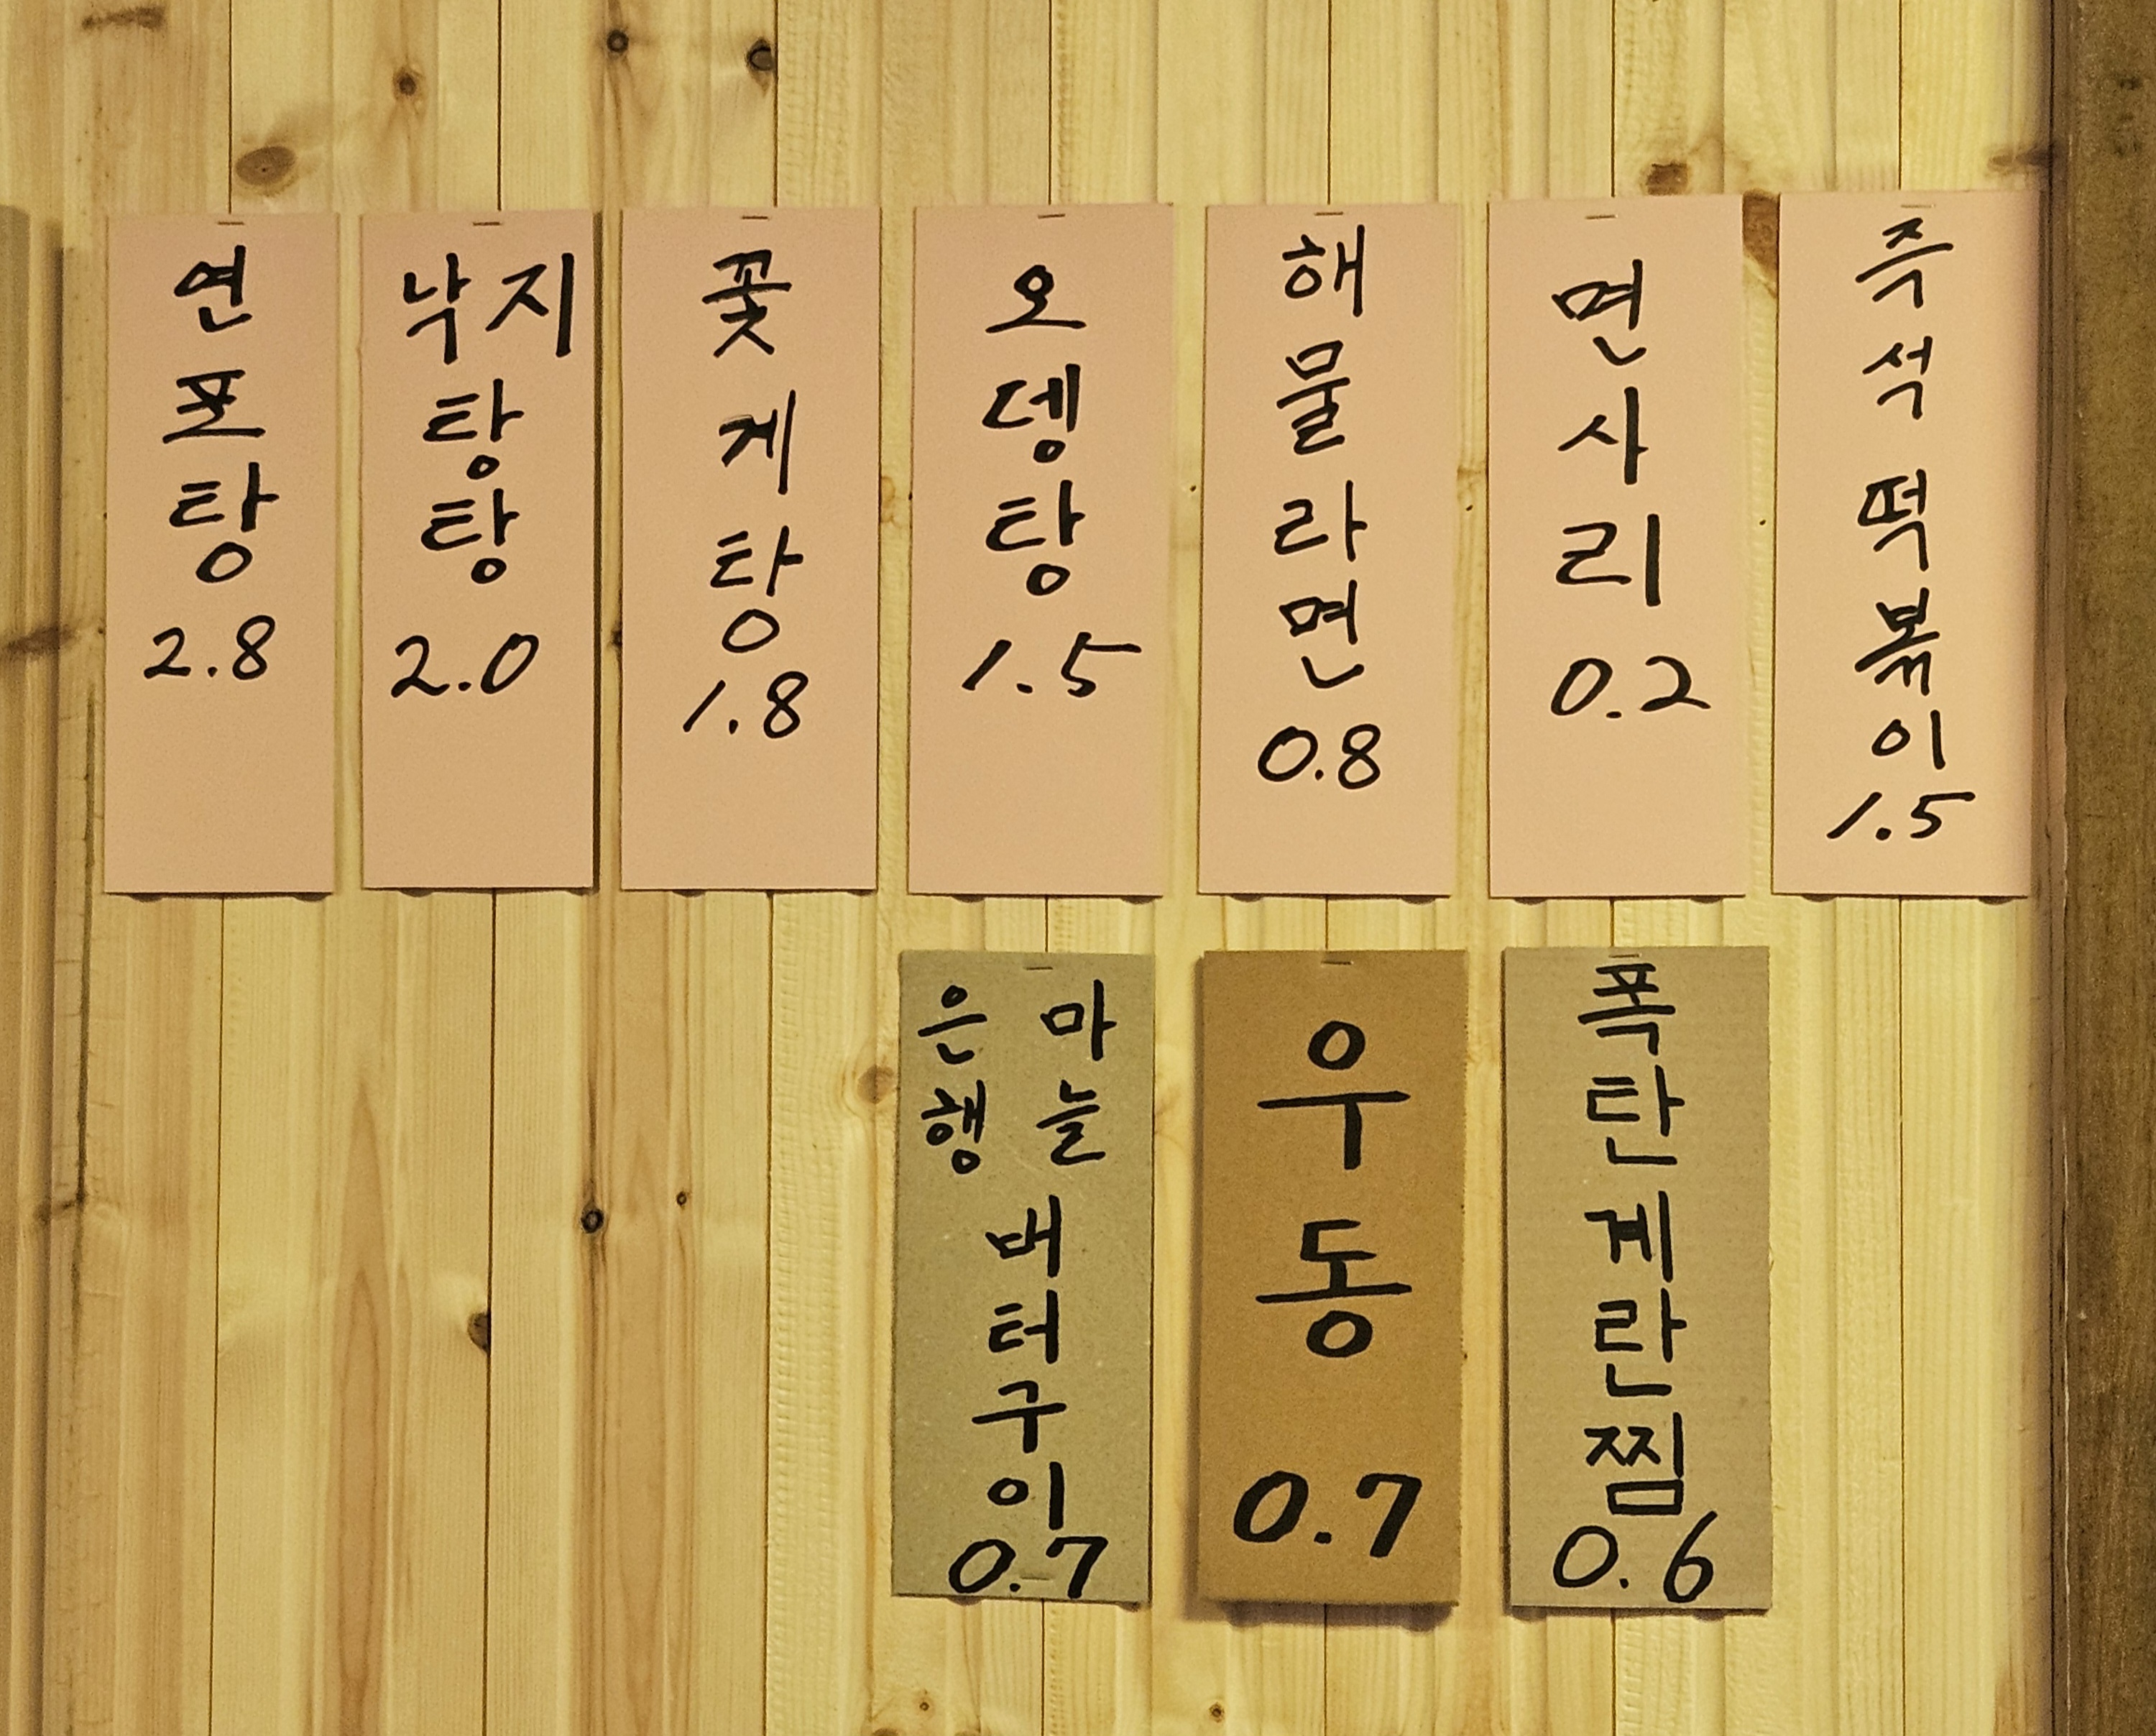 연포탕 2.8
낙지탕탕 2.0
꽃게탕 1.8
오뎅탕 1.5
해물라면 0.8
면사리 0.2
즉석떡볶이 1.5
은행 마늘 버터구이 0.7
우동 0.7
폭탄계란찜 0.6